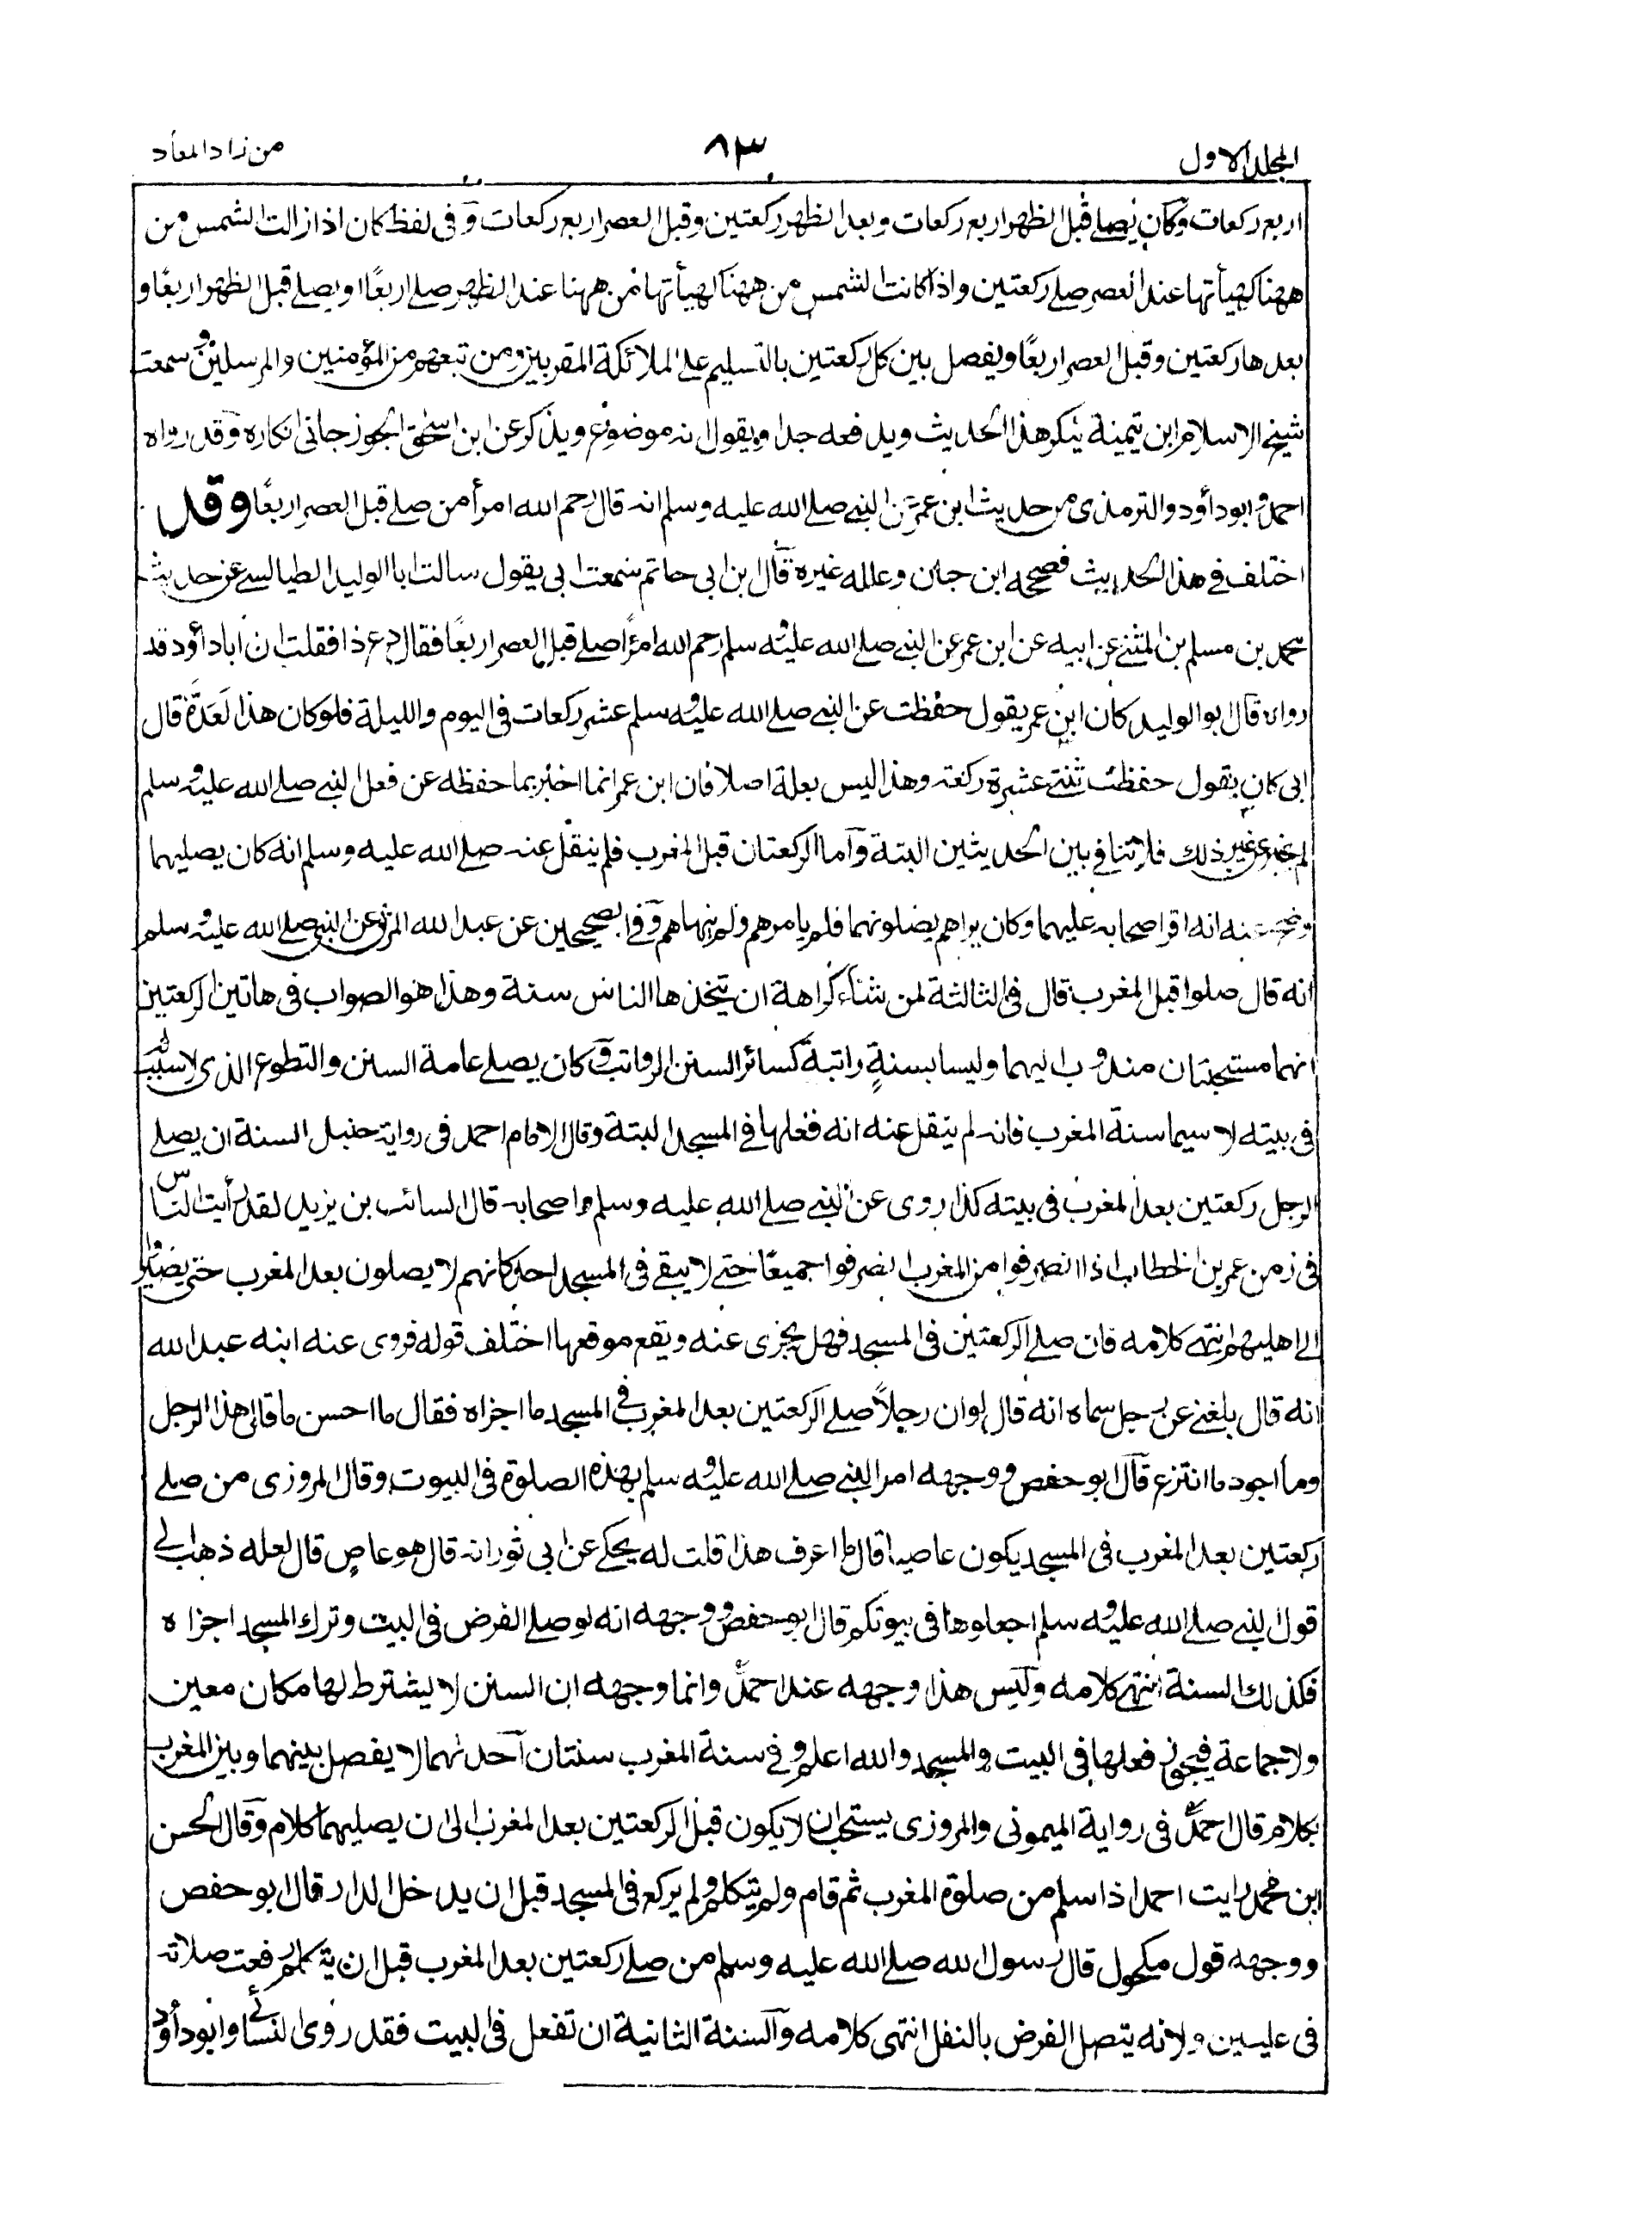 المجلد الاول
٨٣
من زاد المعاد
اربع ركعات وكان يصلے قبل الظهر اربع ركعات وبعد الظهر ركعتين وقبل العصر اربع ركعات و فى لفظ كان اذا زالت الشمس من
ههنا كهيأتها عند العصر صلے ركعتين واذا كانت الشمس من ههنا كهيأتها من ههنا عند الظهر صلے اربعًا ويصلے قبل الظهر اربعًا و
بعدها ركعتين وقبل العصر اربعًا ويفصل بين كل ركعتين بالتسليم علے الملائكة المقربين ومن تبعهم من المؤمنين والمرسلين وسمعت
شيخ الاسلام ابن تيمية ينكر هذا الحديث ويدفعه جدا ويقول انه موضوع ويذكر عن ابن اسحق الجوزجانى انكاره وقد رواه
احمد وابو داؤد والترمذى من حديث ابن عمر عن النبے صلے الله عليه وسلم انه قال رحم الله امرأ من صلے قبل العصر اربعًا وقد
اختلف فے هذا الحديث فصححه ابن حبان وعلله غيره قال ابن ابى حاتم سمعت ابى يقول سالت ابا الوليد الطيالسے عن حديث
محمد بن مسلم بن المثنے عن ابيه عن ابن عمر عن النبے صلے الله عليه وسلم رحم الله امرًا صلے قبل العصر اربعًا فقال دع ذا فقلت ان ابا داؤد قد
رواه قال ابو الوليد كان ابن عمر يقول حفظت عن النبے صلے الله عليه وسلم عشر ركعات فى اليوم والليلة فلو كان هذا لَعَدَّهٗ قال
ابى كان يقول حفظت ثنتے عشرة ركعة وهذا ليس بعلة اصلا فان ابن عمر انما اخبر بما حفظه عن فعل النبے صلے الله عليه وسلم
لم يخبر عن غير ذلك فلا تنافى بين الحديثين البتة وآما الركعتان قبل المغرب فلم ينقل عنه صلے الله عليه وسلم انه كان يصليهما
وصح عنه انه اقر اصحابه عليهما وكان يراهم يصلونهما فلم يامرهم ولم ينهاهم وفے الصحيحين عن عبد الله المزنى عن النبے صلے الله عليه وسلم
انه قال صلوا قبل المغرب قال فى الثالثة لمن شاء كراهة ان يتخذها الناس سنة وهذا هو الصواب فى هاتين الركعتين
انهما مستحبتان مندوب اليهما وليسا بسنةٍ راتبة كسائر السنن الرواتب وكان يصلے عامة السنن والتطوع الذى لا سبب له
فى بيته لا سيما سنة المغرب فانه لم ينقل عنه انه فعلها فے المسجد البتة وقال الامام احمد فى رواية حنبل السنة ان يصلے
الرجل ركعتين بعد المغرب فى بيته كذا روى عن النبے صلے الله عليه وسلم واصحابه قال السائب بن يزيد لقد رأيت الناس
فى زمن عمر بن الخطاب اذا انصرفوا من المغرب انصرفوا جميعًا حتے لا يبقے فى المسجد احد كانهم لا يصلون بعد المغرب حتى يصيروا
الے اهليهم انتهے كلامه فان صلے الركعتين فى المسجد فهل يجزى عنه ويقع موقعها اختلف قوله فروى عنه ابنه عبد الله
انه قال بلغنے عن رجل سماه انه قال لو ان رجلًا صلے الركعتين بعد المغرب فى المسجد ما اجزاه فقال ما احسن ما قال هذا الرجل
وما اجود ما انتزع قال ابو حفص ووجهه امر النبے صلے الله عليه وسلم بهذه الصلوة فى البيوت وقال المروزى من صلے
ركعتين بعد المغرب فى المسجد يكون عاصيا قال ما اعرف هذا قلت له يحكے عن ابى ثور انه قال هو عاصٍ قال لعله ذهب الے
قول النبے صلے الله عليه وسلم اجعلوها فى بيوتكم قال ابو حفص ووجهه انه لو صلے الفرض فى البيت وترك المسجد اجزاه
فكذلك السنة انتهے كلامه وليس هذا وجهه عند احمد وانما وجهه ان السنن لا يشترط لها مكان معين
ولا جماعة فيجوز فعلها فى البيت والمسجد والله اعلم و فے سنة المغرب سنتان آحدهما لا يفصل بينهما وبين المغرب
بكلام قال احمد فى رواية الميمونى والمروزى يستحب ان لا يكون قبل الركعتين بعد المغرب الى ان يصليهما كلام وقال الحسن
ابن محمد رايت احمد اذا سلم من صلوة المغرب ثم قام ولم يتكلم ولم يركع فى المسجد قبل ان يدخل الدار قال ابو حفص
ووجهه قول مكحول قال رسول الله صلے الله عليه وسلم من صلے ركعتين بعد المغرب قبل ان يتكلم رفعت صلاته
فى عليين ولانه يتصل الفرض بالنفل انتهى كلامه وآلسنة الثانية ان تفعل فى البيت فقد روى النسائے وابو داؤد